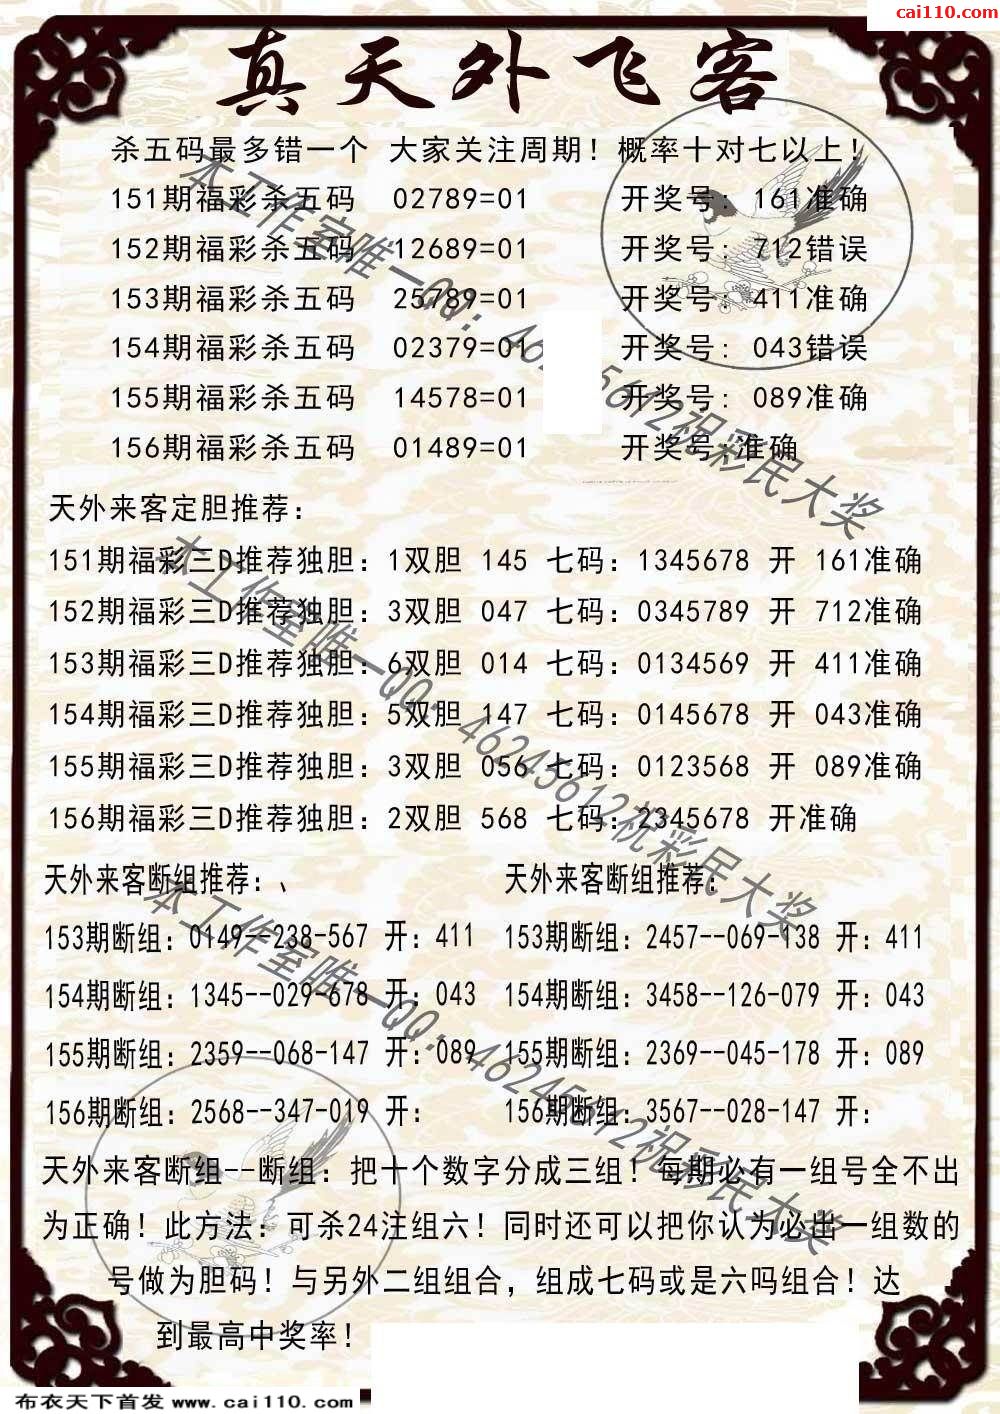 cai110.com
真天外飞客
杀五码最多错一个 大家关注周期！概率十对七以上！
151期福彩杀五码 02789=01 开奖号: 161准确
152期福彩杀五码 12689=01 开奖号: 712错误
153期福彩杀五码 25789=01 开奖号: 411准确
154期福彩杀五码 02379=01 开奖号: 043错误
155期福彩杀五码 14578=01 开奖号: 089准确
156期福彩杀五码 01489=01 开奖号:准确
天外来客定胆推荐:
151期福彩三D推荐独胆: 1双胆 145 七码: 1345678 开 161准确
152期福彩三D推荐独胆: 3双胆 047 七码: 0345789 开 712准确
153期福彩三D推荐独胆: 6双胆 014 七码: 0134569 开 411准确
154期福彩三D推荐独胆: 5双胆 147 七码: 0145678 开 043准确
155期福彩三D推荐独胆: 3双胆 056 七码: 0123568 开 089准确
156期福彩三D推荐独胆: 2双胆 568 七码: 2345678 开准确
天外来客断组推荐:、 天外来客断组推荐:
153期断组: 0149--238-567 开: 411 153期断组: 2457--069-138 开: 411
154期断组: 1345--029-678 开: 043 154期断组: 3458--126-079 开: 043
155期断组: 2359--068-147 开: 089 155期断组: 2369--045-178 开: 089
156期断组: 2568--347-019 开: 156期断组: 3567--028-147 开:
天外来客断组--断组: 把十个数字分成三组！每期必有一组号全不出
为正确！此方法: 可杀24注组六！同时还可以把你认为必出一组数的
号做为胆码！与另外二组组合，组成七码或是六吗组合！达
到最高中奖率！
本工作室唯一QQ: 46245612祝彩民大奖
本工作室唯一QQ: 46245612祝彩民大奖
布衣天下首发 www.cai110.com